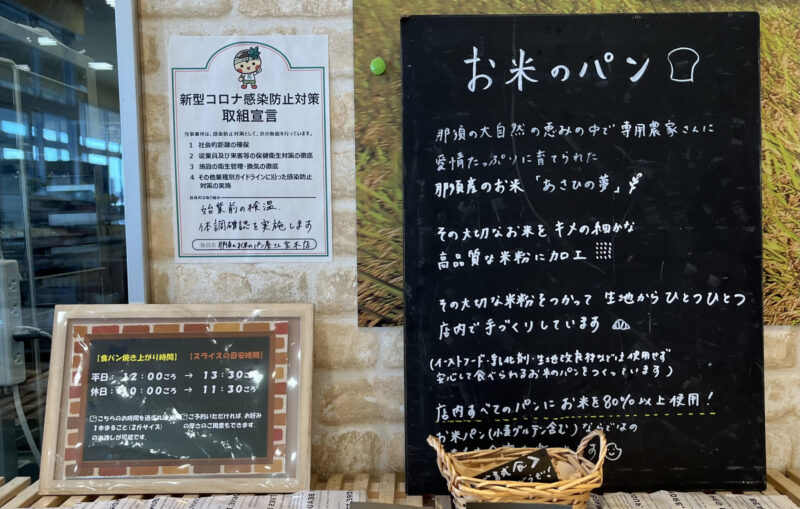 新型コロナ感染防止対策
取組宣言
当事業所は、感染防止対策として、次の取組を行っています。
1 社会的距離の確保
2 従業員及び来客等の保健衛生対策の徹底
3 施設の衛生管理・換気の徹底
4 その他業種別ガイドラインに沿った感染防止
対策の実施
始業前の検温
体調確認を実施します
施設名 那須のお米のパン屋さん
【食パン焼き上がり時間】 【スライスの目安時間】
平日: 12:00ごろ → 13:30ごろ
休日: 10:00ごろ → 11:30ごろ
こちらのお時間を過ぎれば
1本まるごと(2斤サイズ)
のお渡しが可能です
ご予約いただければ、お好み
の厚さのご用意もできます
お米のパン
那須の大自然の恵みの中で専用農家さんに
愛情たっぷりに育てられた
那須産のお米「あさひの夢」
その大切なお米をキメの細かな
高品質な米粉に加工
その大切な米粉をつかって 生地からひとつひとつ
店内で手づくりしています
(イーストフード・乳化剤・生地改良材などは使用せず
安心して食べられるお米のパンをつくっています)
店内すべてのパンにお米を80%以上使用!
お米パン(小麦グルテン含む)ならではの
す
試食
どうぞ!